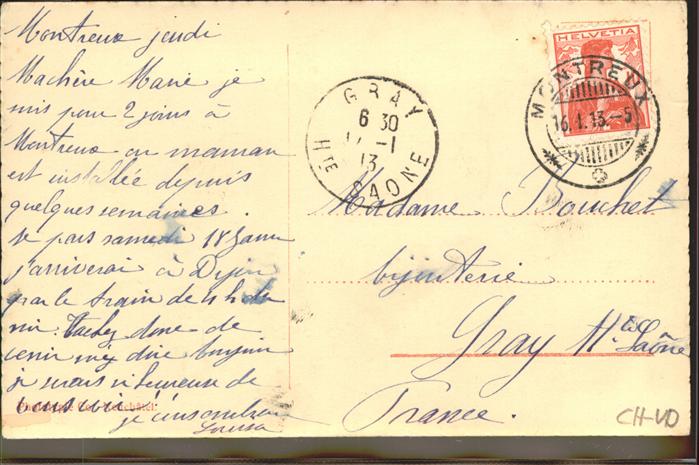 Montreux jeudi
Ma chère Marie je
suis pour 2 jours à
Montreux ou maman
est installée depuis
quelques semaines.
Je pars samedi 18 Janv
j'arriverai à Dijon
par le train de 4 h du
soir. Tachez donc de
venir me dire bonjour
je serais si heureuse de
vous voir je vous embrasse
Louisa
HELVETIA
MONTREUX
16.1.13.-5
GRAY
6 30
17 -1
13
HTE SAONE
Madame Bouchet
bijouterie
Gray Hte Saône
France.
CH-VD